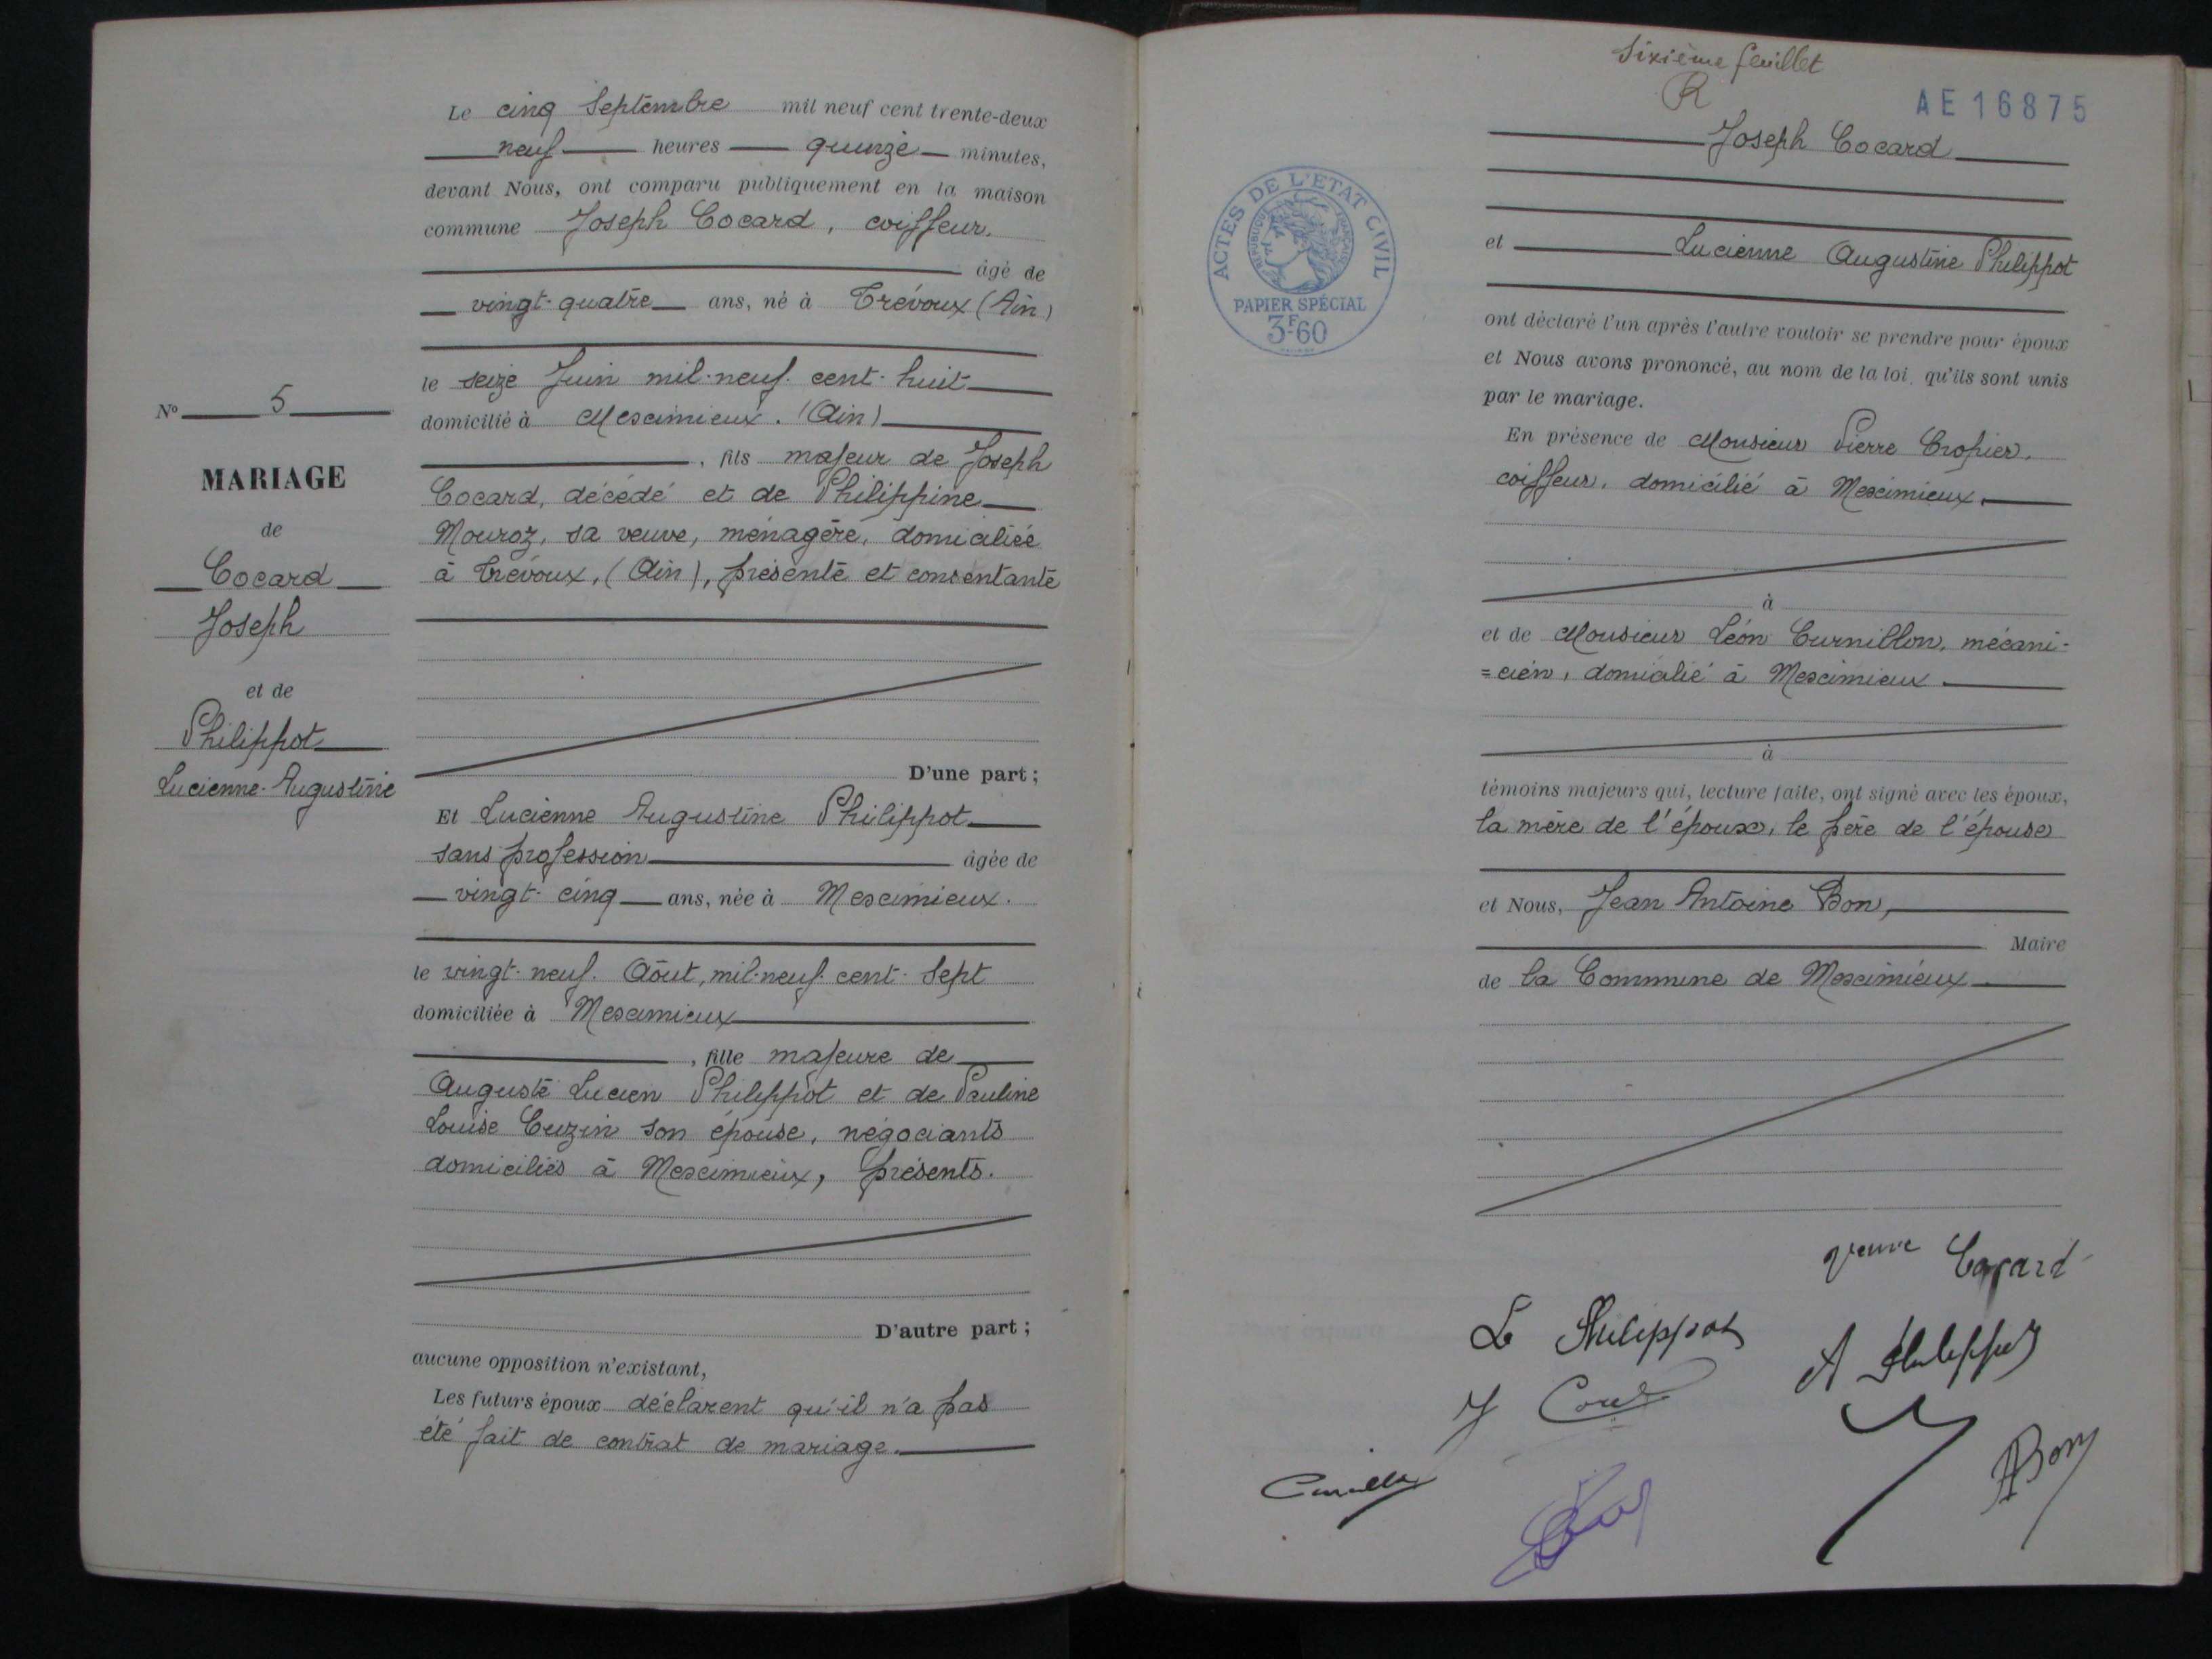 Le cinq Septembre mil neuf cent trente-deux
neuf heures quinze minutes,
devant Nous, ont comparu publiquement en la maison
commune Joseph Cocard, coiffeur.
âgé de
vingt-quatre ans, né à Trévoux (Ain)
le seize Juin mil-neuf-cent-huit
domicilié à Meximieux. (Ain)
, fils majeur de Joseph
Cocard, décédé et de Philippine
Mouroz, sa veuve, ménagère, domiciliée
à Trévoux, (Ain), présente et consentante
D'une part ;
Et Lucienne Augustine Philippot
sans profession âgée de
vingt-cinq ans, née à Meximieux.
le vingt-neuf Août, mil-neuf-cent-Sept
domiciliée à Meximieux
, fille majeure de
Auguste Lucien Philippot et de Pauline
Louise Cuzin son épouse, négociants
domiciliés à Meximieux, présents.
D'autre part ;
aucune opposition n'existant,
Les futurs époux déclarent qu'il n'a pas
été fait de contrat de mariage.
No 5
MARIAGE
de
Cocard
Joseph
et de
Philippot
Lucienne-Augustine
Sixième feuillet
R
AE 16875
ACTES DE L'ETAT CIVIL
REPUBLIQUE FRANÇAISE
PAPIER SPÉCIAL
3F60
Joseph Cocard
et Lucienne Augustine Philippot
ont déclaré l'un après l'autre vouloir se prendre pour époux
et Nous avons prononcé, au nom de la loi, qu'ils sont unis
par le mariage.
En présence de Monsieur Pierre Cropier,
coiffeur, domicilié à Meximieux,
à
et de Monsieur Léon Curnillon, mécani-
=cien, domicilié à Meximieux
à
témoins majeurs qui, lecture faite, ont signé avec les époux,
la mère de l'époux, le père de l'épouse
et Nous, Jean Antoine Bon,
Maire
de la Commune de Meximieux
veuve Cocard
L Philippot
A Philippot
J
ABon